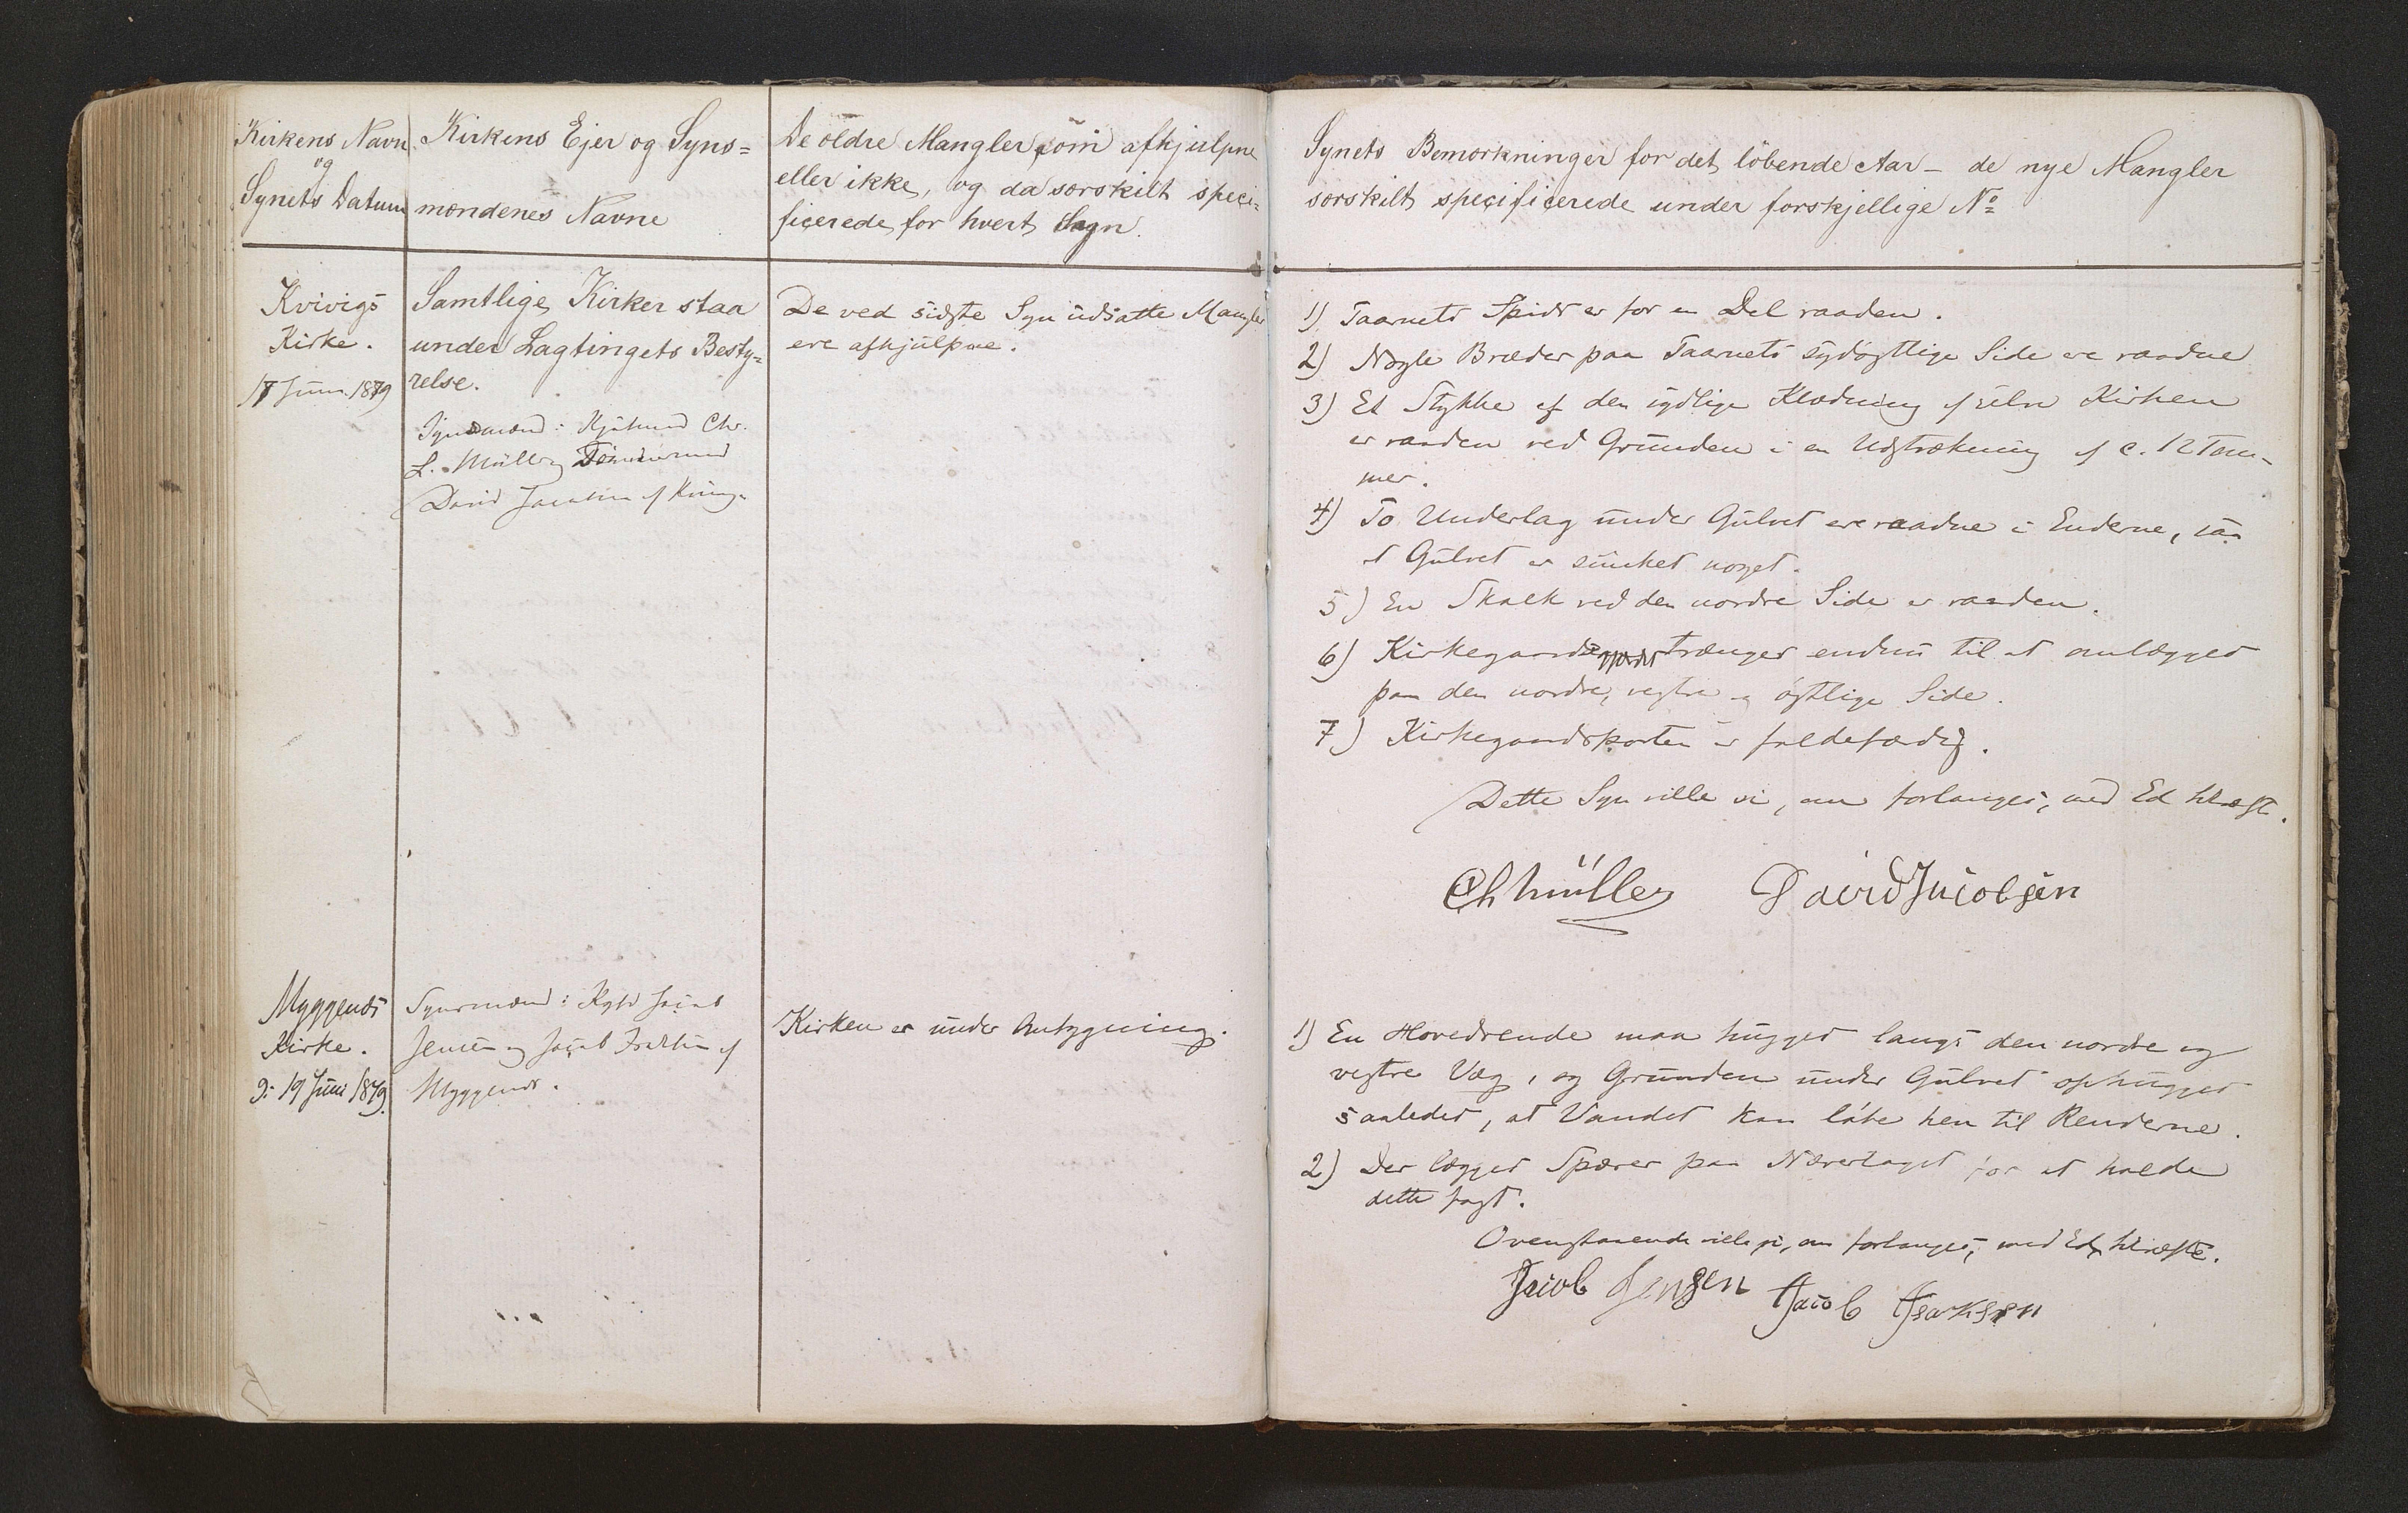 Kirkens Navn
og
Synets Datum
Kirkens Ejer og Syns=
mændenes Navne
De ældre Mangler som afhjulpne
eller ikke, og da særskilt speci=
ficerede for hvert Sogn.
Synets Bemærkninger for det løbende Aar – de nye Mangler
særskilt specificerede under forskjellige No
Kvivigs
Kirke.
17 Juni 1879
Samtlige Kirker staa
under Lagtingets Besty=
relse.
Synsmænd: Chr.
L. Müller og Tømmermand
David Jacobsen af Kvivig.
De ved sidste Syn udsatte Mangler
ere afhjulpne.
1) Taarnets Spids er for en Del raaden.
2) Nogle Bræder paa Taarnets sydøstlige Side ere raadne
3) Et Stykke af den sydlige Klædning af selve Kirken
er raaden ved Grunden i en Udstrækning af c. 12 Tom-
mer.
4) To Underlag under Gulvet ere raadne i Enderne, saa
at Gulvet er sunket noget.
5) En Skalk ved den nordre Side er raaden.
6) Kirkegaards trænger endnu til at omlægges
paa den nordre, vestre og østlige Side.
7) Kirkegaardsporten er faldefærdig.
Dette Syn ville vi, om forlanges, med Ed bekræfte.
Ch Müller David Jacobsen
Myggenæs
Kirke.
D: 19 Juni 1879.
Synsmænd: Jacob
Jensen og Jacob af
Myggenæs.
Kirken er under Ombygning.
1) En Hovedrende maa hugges langs den nordre og
vestre Væg, og Grunden under Gulvet ophugges
saaledes, at Vandet kan løbe hen til Renderne.
2) Der lægges Spærer paa Nævertaget for at holde
dette fast.
Ovenstaaende ville vi, om forlanges, med Ed bekræfte.
Jacob Jensen Jacob Isaksen